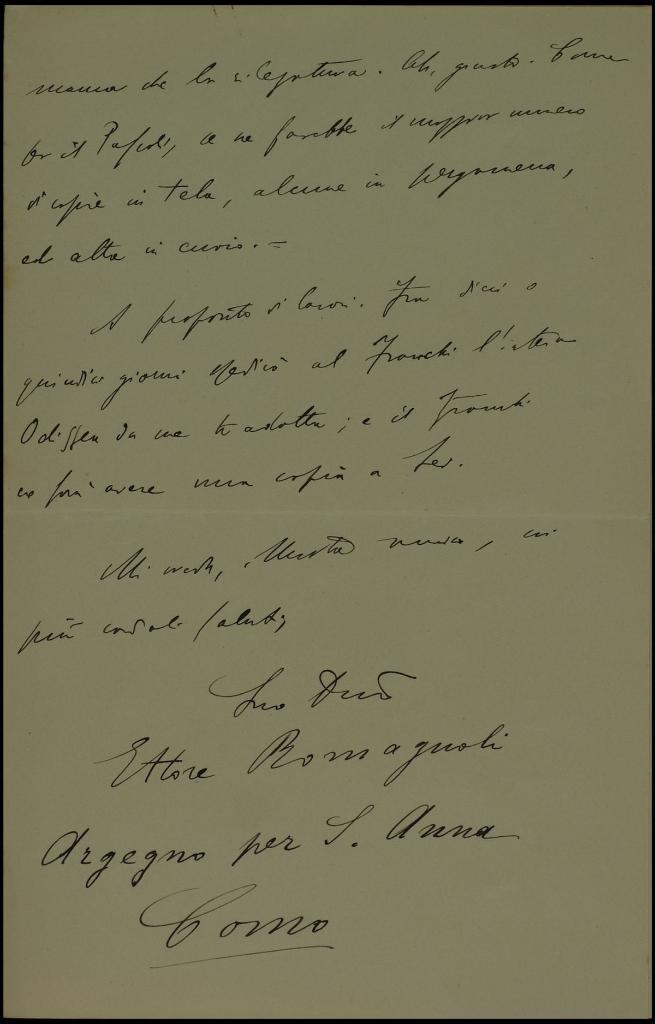 manca che la rilegatura. Ah, giusto. Come
per il Pascoli, ce ne sarebbe il maggior numero
di copie in tela, alcune in pergamena,
ed altre in cuoio. =
A proposito di lavori. Fra dieci o
quindici giorni spedirò al Franchi l'intera
Odissea da me tradotta; e il Franchi
ne farà avere una copia a Lei.
Mi creda, illustre, coi
più cordiali saluti,
Suo Dev̄
Ettore Romagnoli
Argegno per S. Anna
Como